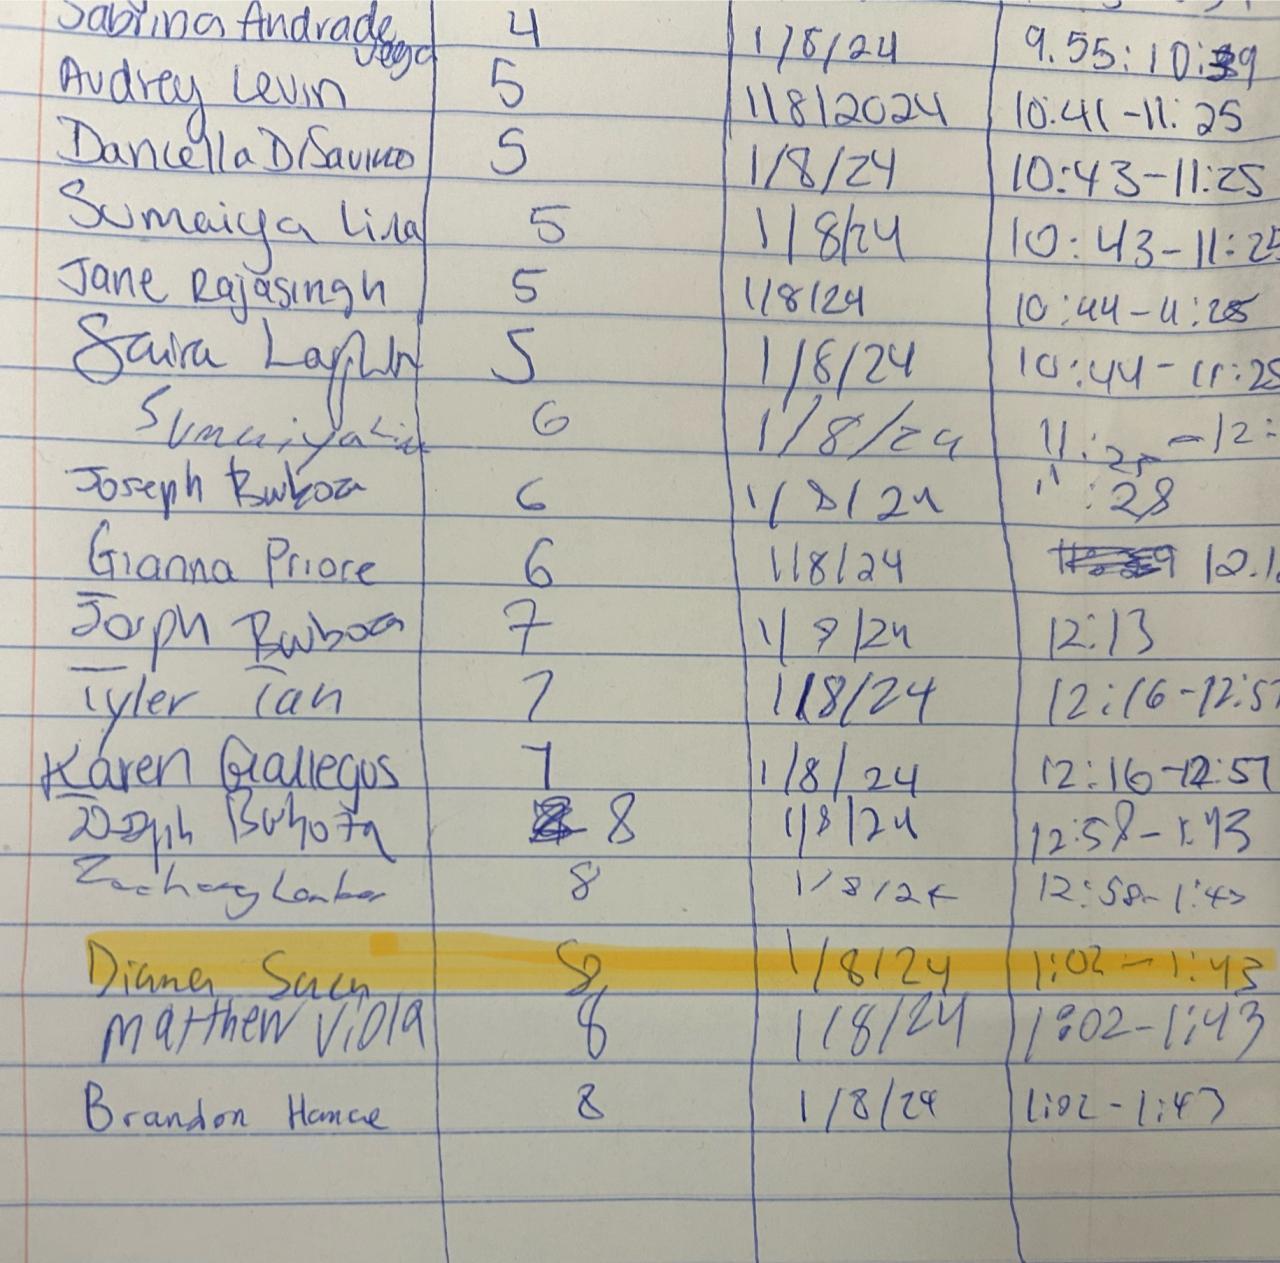 Sabrina Andrade Vega 4 1/8/24 9.55:10:39
Audrey Levin 5 1/8/2024 10:41-11:25
Daniella DiSavino 5 1/8/24 10:43-11:25
Sumaiya 5 1/8/24 10:43-11:25
Jane Rajasingh 5 1/8/24 10:44-11:25
Saira 5 1/8/24 10:44-11:25
Sumaiya 6 1/8/24 11:25-12:
Joseph 6 1/8/24 11:28
Gianna Priore 6 1/8/24 12.1
Joseph 7 1/8/24 12:13
Tyler Tan 7 1/8/24 12:16-12:57
Karen Gallegos 7 1/8/24 12:16-12:57
Joseph 8 1/8/24 12:58-1:43
Zachary 8 1/8/24 12:58-1:43
Diana 8 1/8/24 1:02-1:43
Matthew Viola 8 1/8/24 1:02-1:43
Brandon 8 1/8/24 1:02-1:43